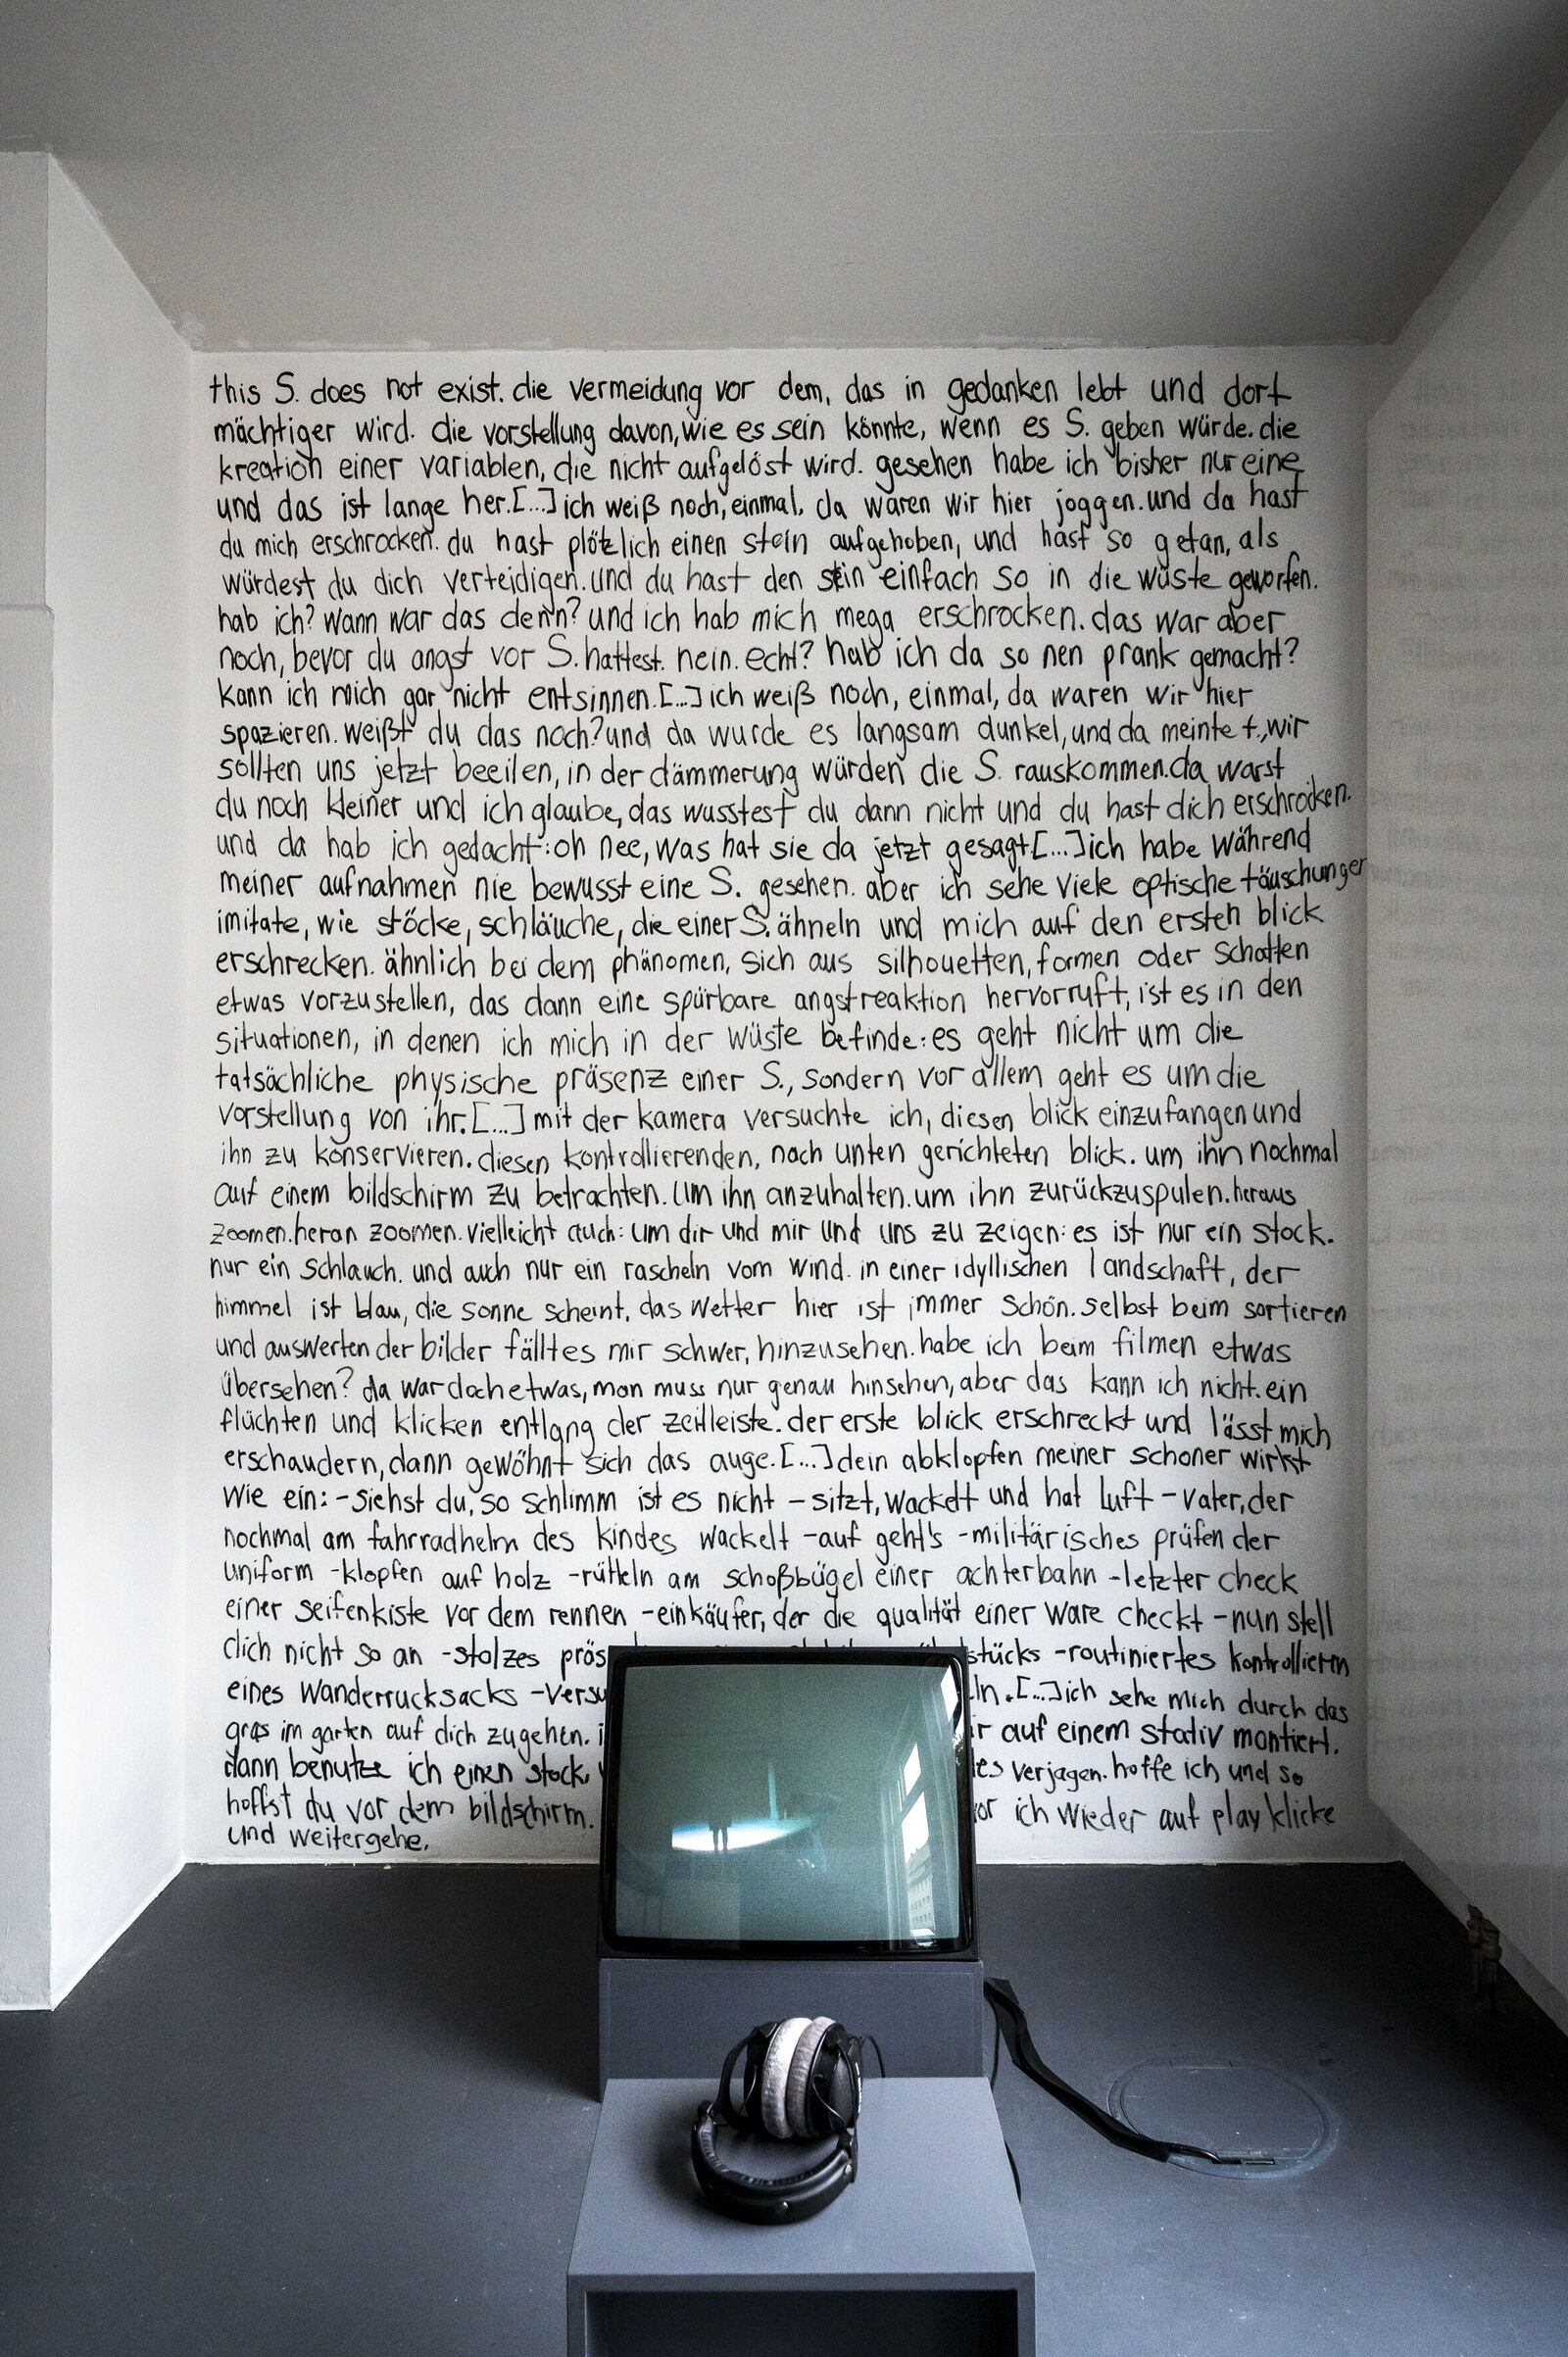 this S. does not exist. die vermeidung vor dem, das in gedanken lebt und dort
mächtiger wird. die vorstellung davon, wie es sein könnte, wenn es S. geben würde. die
kreation einer variablen, die nicht aufgelöst wird. gesehen habe ich bisher nur eine
und das ist lange her. [...] ich weiß noch, einmal, da waren wir hier joggen. und da hast
du mich erschrocken. du hast plötzlich einen stein aufgehoben, und hast so getan, als
würdest du dich verteidigen. und du hast den stein einfach so in die wüste geworfen.
hab ich? wann war das denn? und ich hab mich mega erschrocken. das war aber
noch, bevor du angst vor S. hattest. nein. echt? hab ich da so nen prank gemacht?
kann ich mich gar nicht entsinnen. [...] ich weiß noch, einmal, da waren wir hier
spazieren. weißt du das noch? und da wurde es langsam dunkel, und da meinte t., wir
sollten uns jetzt beeilen, in der dämmerung würden die S. rauskommen. da warst
du noch kleiner und ich glaube, das wusstest du dann nicht und du hast dich erschrocken.
und da hab ich gedacht: oh nee, was hat sie da jetzt gesagt [...] ich habe während
meiner aufnahmen nie bewusst eine S. gesehen. aber ich sehe viele optische täuschungen
imitate, wie stöcke, schläuche, die einer S. ähneln und mich auf den ersten blick
erschrecken. ähnlich bei dem phänomen, sich aus silhouetten, formen oder schatten
etwas vorzustellen, das dann eine spürbare angstreaktion hervorruft, ist es in den
situationen, in denen ich mich in der wüste befinde: es geht nicht um die
tatsächliche physische präsenz einer S., sondern vor allem geht es um die
vorstellung von ihr. [...] mit der kamera versuchte ich, diesen blick einzufangen und
ihn zu konservieren. diesen kontrollierenden, nach unten gerichteten blick. um ihn nochmal
auf einem bildschirm zu betrachten. um ihn anzuhalten. um ihn zurückzuspulen. heraus
zoomen. heran zoomen. vielleicht auch: um dir und mir und uns zu zeigen: es ist nur ein stock.
nur ein schlauch. und auch nur ein rascheln vom wind. in einer idyllischen landschaft, der
himmel ist blau, die sonne scheint, das wetter hier ist immer schön. selbst beim sortieren
und auswerten der bilder fällt es mir schwer, hinzusehen. habe ich beim filmen etwas
übersehen? da war doch etwas, man muss nur genau hinsehen, aber das kann ich nicht. ein
flüchten und klicken entlang der zeitleiste. der erste blick erschreckt und lässt mich
erschaudern, dann gewöhnt sich das auge. [...] dein abklopfen meiner schoner wirkt
wie ein: -siehst du, so schlimm ist es nicht -sitzt, wackelt und hat luft -vater, der
nochmal am fahrradhelm des kindes wackelt -auf geht's -militärisches prüfen der
uniform -klopfen auf holz -rütteln am schoßbügel einer achterbahn -letzter check
einer seifenkiste vor dem rennen -einkäufer, der die qualität einer ware checkt -nun stell
dich nicht so an -stolzes präs stücks -routiniertes kontrollieren
eines wanderrucksacks -versu ln. [...] ich sehe mich durch das
gras im garten auf dich zugehen. i r auf einem stativ montiert.
dann benutze ich einen stock, es verjagen. hoffe ich und so
hoffst du vor dem bildschirm. or ich wieder auf play klicke
und weitergehe.